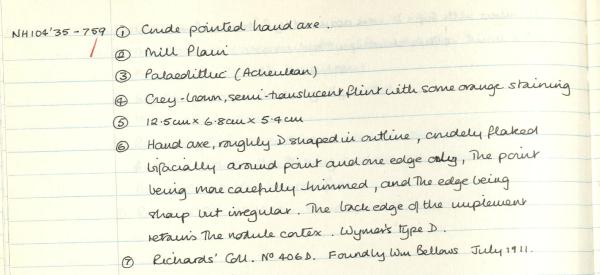 NH104'35-759 ① Crude pointed hand axe.
② Mill Plain
③ Palaeolithic (Acheulean)
④ Grey-brown, semi-translucent flint with some orange staining
⑤ 12.5cm x 6.8cm x 5.4cm
⑥ Hand axe, roughly D shaped in outline, crudely flaked
bifacially around point and one edge only, The point
being more carefully trimmed, and The edge being
sharp but irregular. The back edge of the implement
retains The nodule cortex. Wymer's type D.
⑦ Richards' Coll. No 406D. Found by Wm Bellows July 1911.